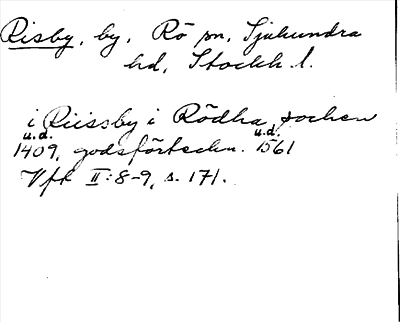 Risby, by, Rö sn, Sjuhundra
hd, Stockh. l.
i Riissby i Rödha sochen
u.d. u.d.
1409, godsförteckn. 1561
Vfk II:8-9, s. 171.